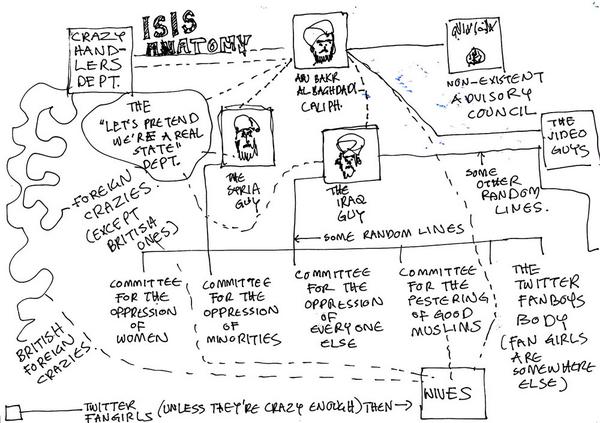 CRAZY
HAND-
LERS
DEPT.
ISIS
ANATOMY
ABU BAKR
AL BAGHDADI-
CALIPH.
NON-EXISTENT
ADVISORY
COUNCIL
THE
"LET'S PRETEND
WE'RE A REAL
STATE"
DEPT.
THE
SYRIA
GUY
THE
IRAQ
GUY
THE
VIDEO
GUYS
SOME
OTHER
RANDOM
LINES.
FOREIGN
CRAZIES
(EXCEPT
BRITISH
ONES)
SOME RANDOM LINES
COMMITTEE
FOR THE
OPPRESSION
OF
WOMEN
COMMITTEE
FOR THE
OPPRESSION
OF MINORITIES
COMMITTEE
FOR THE
OPPRESSION
OF
EVERYONE
ELSE
COMMITTEE
FOR THE
PESTERING
OF GOOD
MUSLIMS
THE
TWITTER
FANBOYS
BODY
(FAN GIRLS
ARE
SOMEWHERE
ELSE)
BRITISH
FOREIGN
CRAZIES
WIVES
TWITTER
FANGIRLS (UNLESS THEY'RE CRAZY ENOUGH) THEN